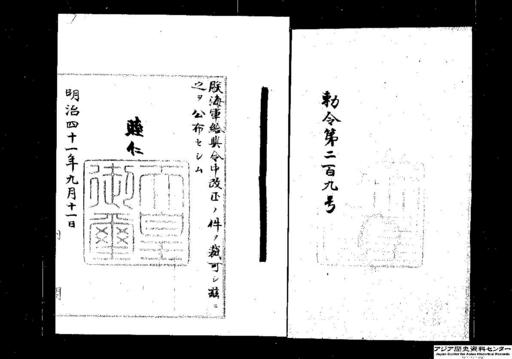 勅令第二百九号
朕海軍給與令中改正ノ件ヲ裁可シ茲ニ
之ヲ公布セシム
睦仁
天皇
御璽
明治四十一年九月十一日
アジア歴史資料センター
Japan Center for Asian Historical Records